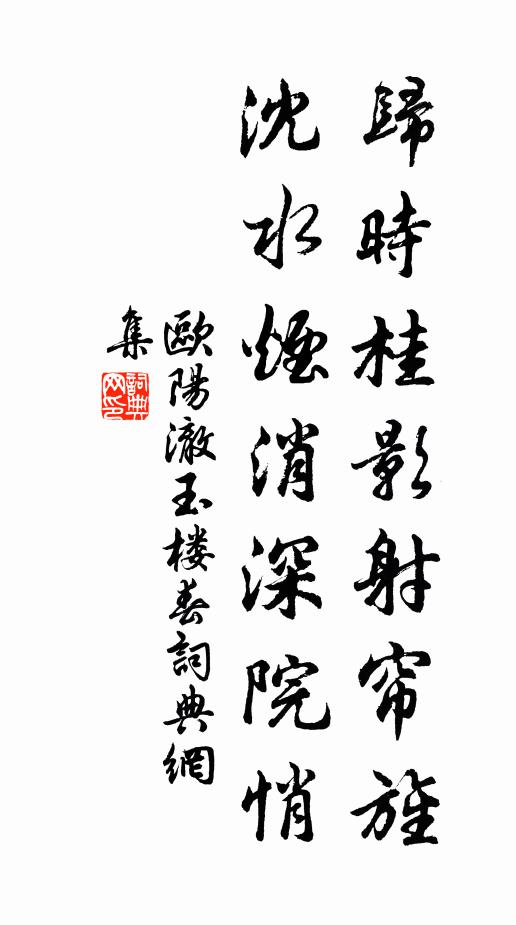 歸時桂影射帘旌
沈水煙消深院悄
歐陽澈玉楼春詞典網
集
詞典
网印